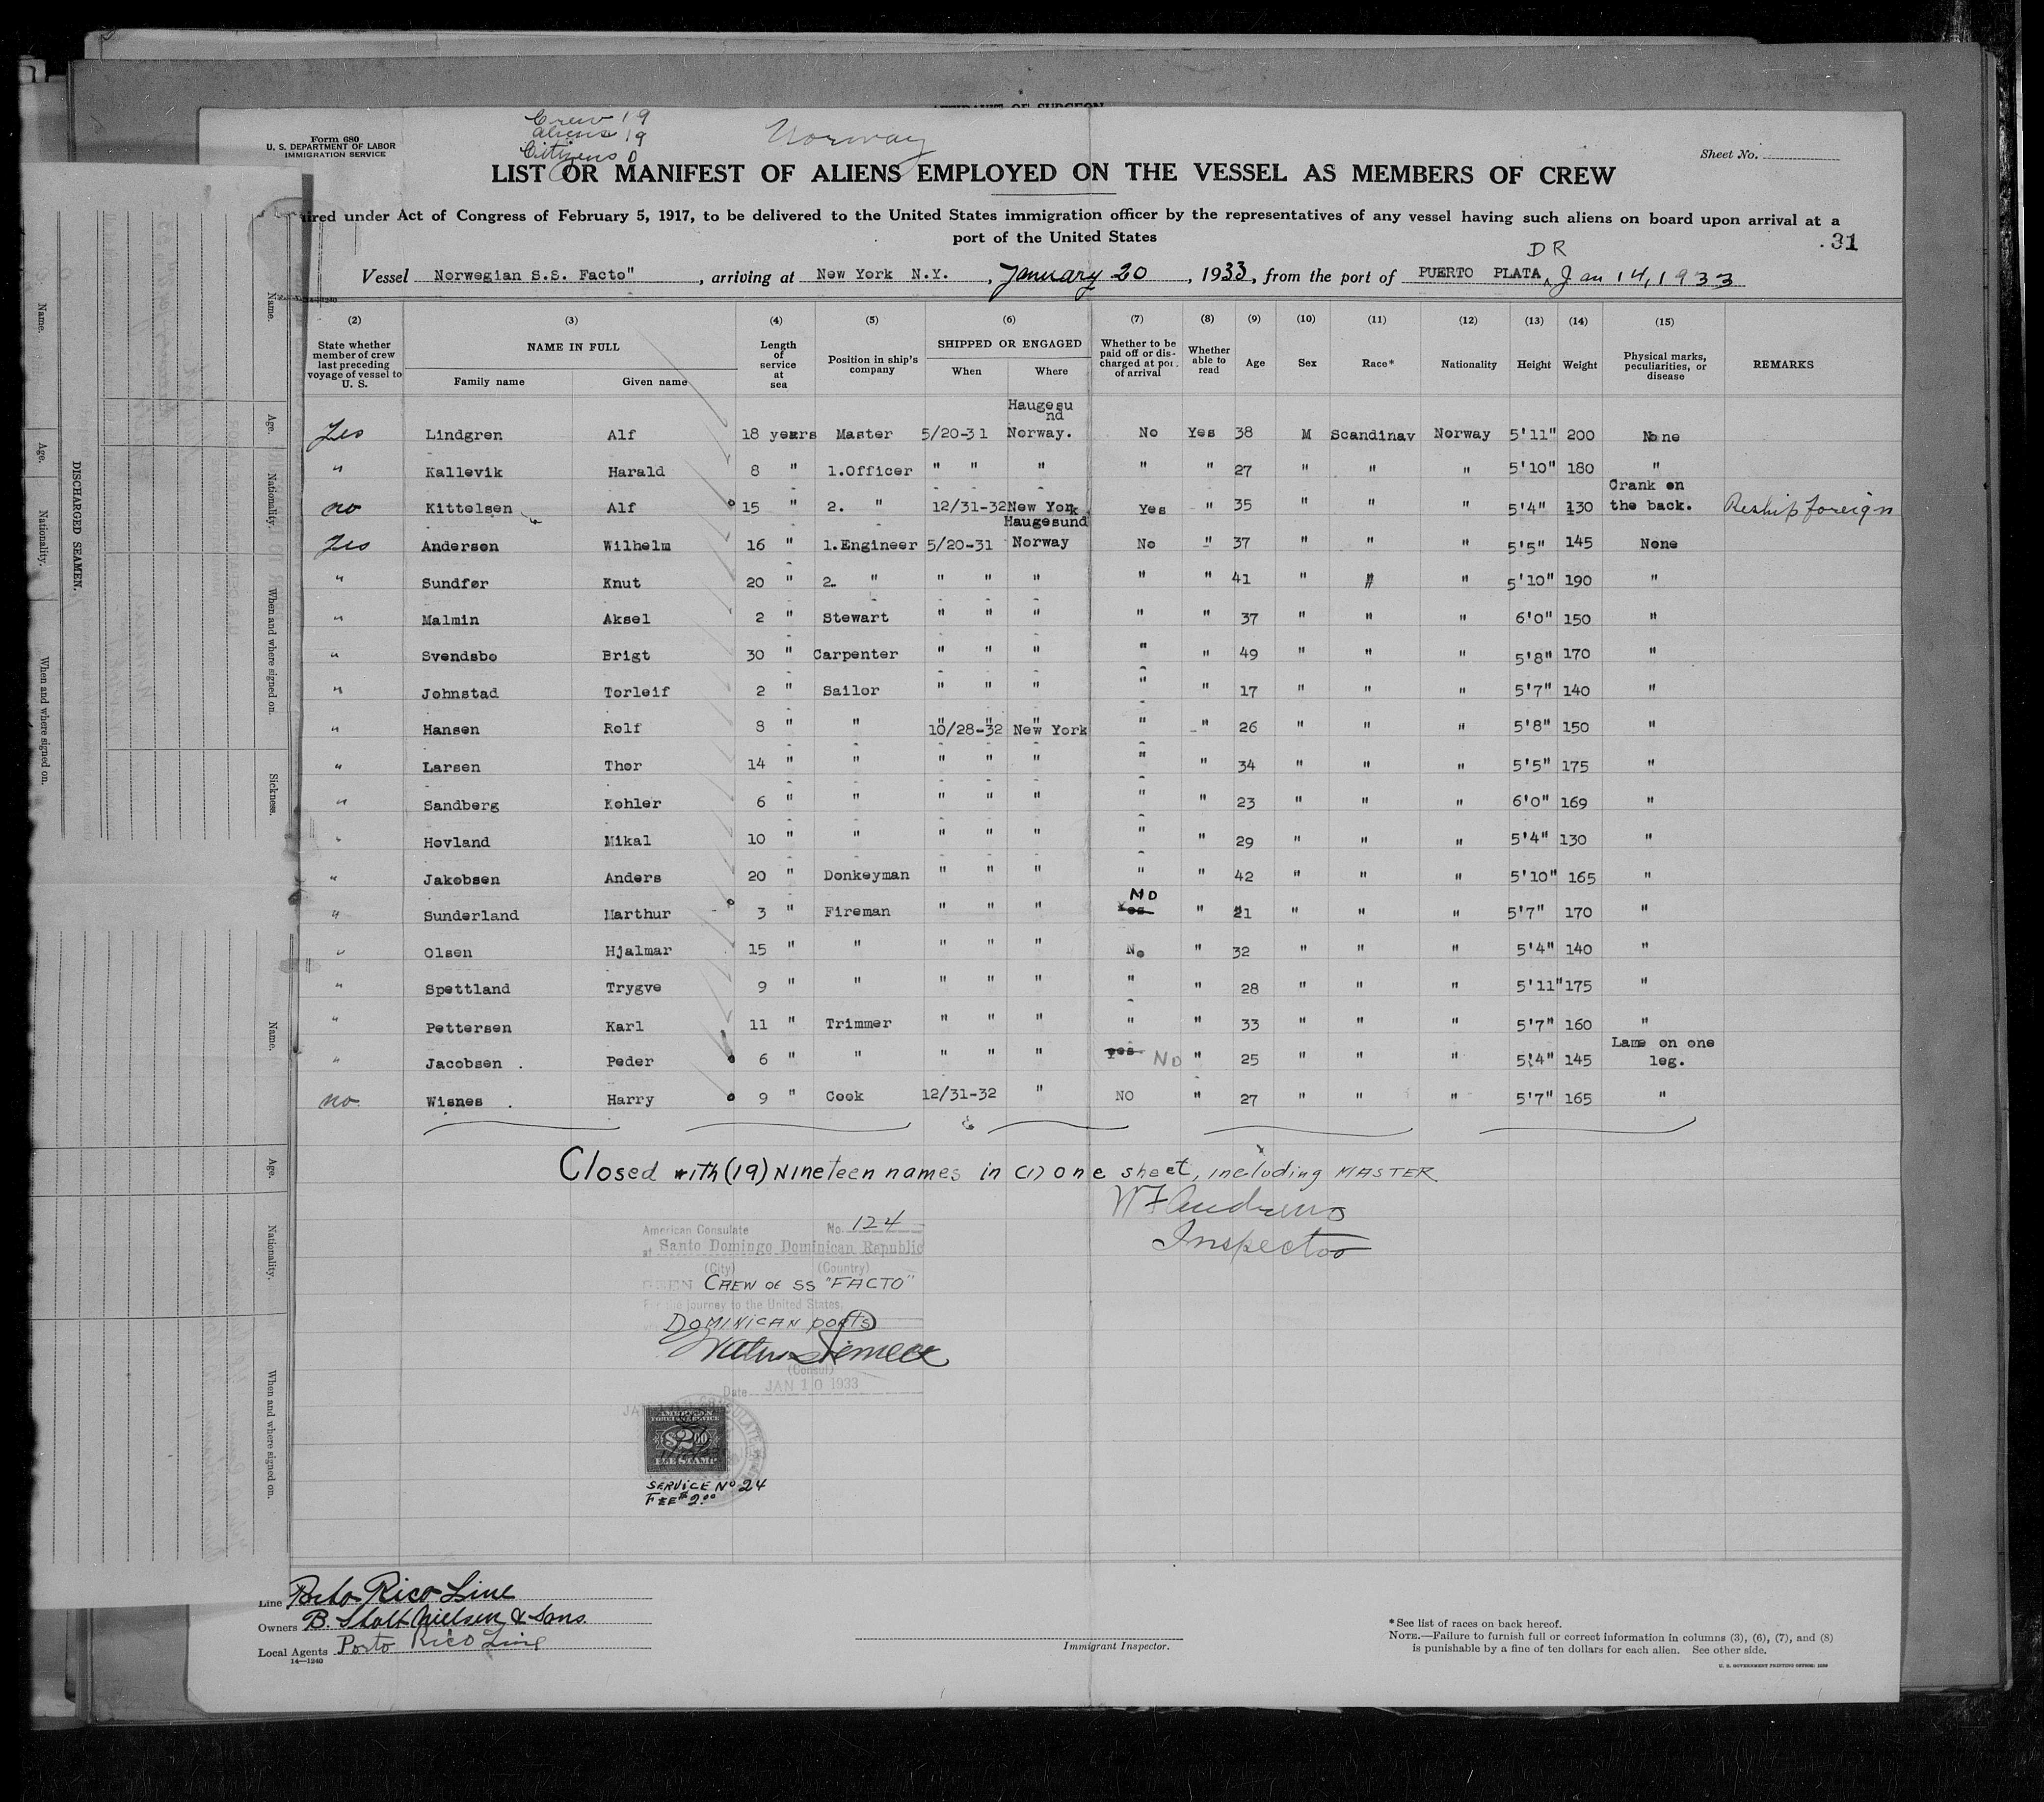 AFFIDAVIT OF SURGEON
Crew 19
Aliens 19
Citizens 0
Norway
Form 680
U. S. DEPARTMENT OF LABOR
IMMIGRATION SERVICE
Sheet No.
LIST OR MANIFEST OF ALIENS EMPLOYED ON THE VESSEL AS MEMBERS OF CREW
ired under Act of Congress of February 5, 1917, to be delivered to the United States immigration officer by the representatives of any vessel having such aliens on board upon arrival at a
port of the United States
31
DR
Vessel Norwegian S.S. Facto" , arriving at New York N.Y. , January 20 , 1933, from the port of PUERTO PLATA, Jan 14, 1933
(2) (3) (4) (5) (6) (7) (8) (9) (10) (11) (12) (13) (14) (15)
State whether member of crew last preceding voyage of vessel to U. S.
NAME IN FULL
Family name Given name
Length of service at sea
Position in ship's company
SHIPPED OR ENGAGED
When Where
Whether to be paid off or discharged at port of arrival
Whether able to read
Age Sex Race* Nationality Height Weight
Physical marks, peculiarities, or disease
REMARKS
Yes Lindgren Alf 18 years Master 5/20-31 Haugesund Norway. No Yes 38 M Scandinav Norway 5'11" 200 None
" Kallevik Harald 8 " 1.Officer " " " " " 27 " " " 5'10" 180 "
no Kittelsen Alf 15 " 2. " 12/31-32 New York Yes " 35 " " " 5'4" 130 Crank on the back. Reship foreign
Yes Andersen Wilhelm 16 " 1.Engineer 5/20-31 Haugesund Norway No " 37 " " " 5'5" 145 None
" Sundfør Knut 20 " 2. " " " " " " 41 " " " 5'10" 190 "
" Malmin Aksel 2 " Stewart " " " " " 37 " " " 6'0" 150 "
" Svendsbo Brigt 30 " Carpenter " " " " " 49 " " " 5'8" 170 "
" Johnstad Torleif 2 " Sailor " " " " " 17 " " " 5'7" 140 "
" Hansen Rolf 8 " " 10/28-32 New York " " 26 " " " 5'8" 150 "
" Larsen Thor 14 " " " " " " " 34 " " " 5'5" 175 "
" Sandberg Kohler 6 " " " " " " " 23 " " " 6'0" 169 "
" Hovland Mikal 10 " " " " " " " 29 " " " 5'4" 130 "
" Jakobsen Anders 20 " Donkeyman " " " " " 42 " " " 5'10" 165 "
" Sunderland Marthur 3 " Fireman " " " Yes NO " 21 " " " 5'7" 170 "
" Olsen Hjalmar 15 " " " " " No " 32 " " " 5'4" 140 "
" Spettland Trygve 9 " " " " " " " 28 " " " 5'11" 175 "
" Pettersen Karl 11 " Trimmer " " " " " 33 " " " 5'7" 160 "
" Jacobsen . Peder 6 " " " " " yes NO " 25 " " " 5'4" 145 Lame on one leg.
no Wisnes . Harry 9 " Cook 12/31-32 " NO " 27 " " " 5'7" 165 "
Closed with (19) Nineteen names in (1) one sheet, including MASTER
W F Andrews
Inspector
American Consulate No. 124
at Santo Domingo Dominican Republic
(City) (Country)
CREW OF SS "FACTO"
For the journey to the United States,
DOMINICAN ports
(Consul)
Date JAN 10 1933
AMERICAN
FOREIGN SERVICE
$2.00
FEE STAMP
SERVICE No 24
FEE $2.00
Line Porto Rico Line
Owners B. Stolt Nielsen & Sons.
Local Agents Porto Rico Line
14—1240
Immigrant Inspector.
*See list of races on back hereof.
NOTE.—Failure to furnish full or correct information in columns (3), (6), (7), and (8)
is punishable by a fine of ten dollars for each alien. See other side.
U. S. GOVERNMENT PRINTING OFFICE: 1930
DISCHARGED SEAMEN.
Name.
Age.
Nationality.
When and where signed on.
Name.
Age.
Nationality.
When and where signed on.
Sickness.
Name.
Age.
Nationality.
When and where signed on.